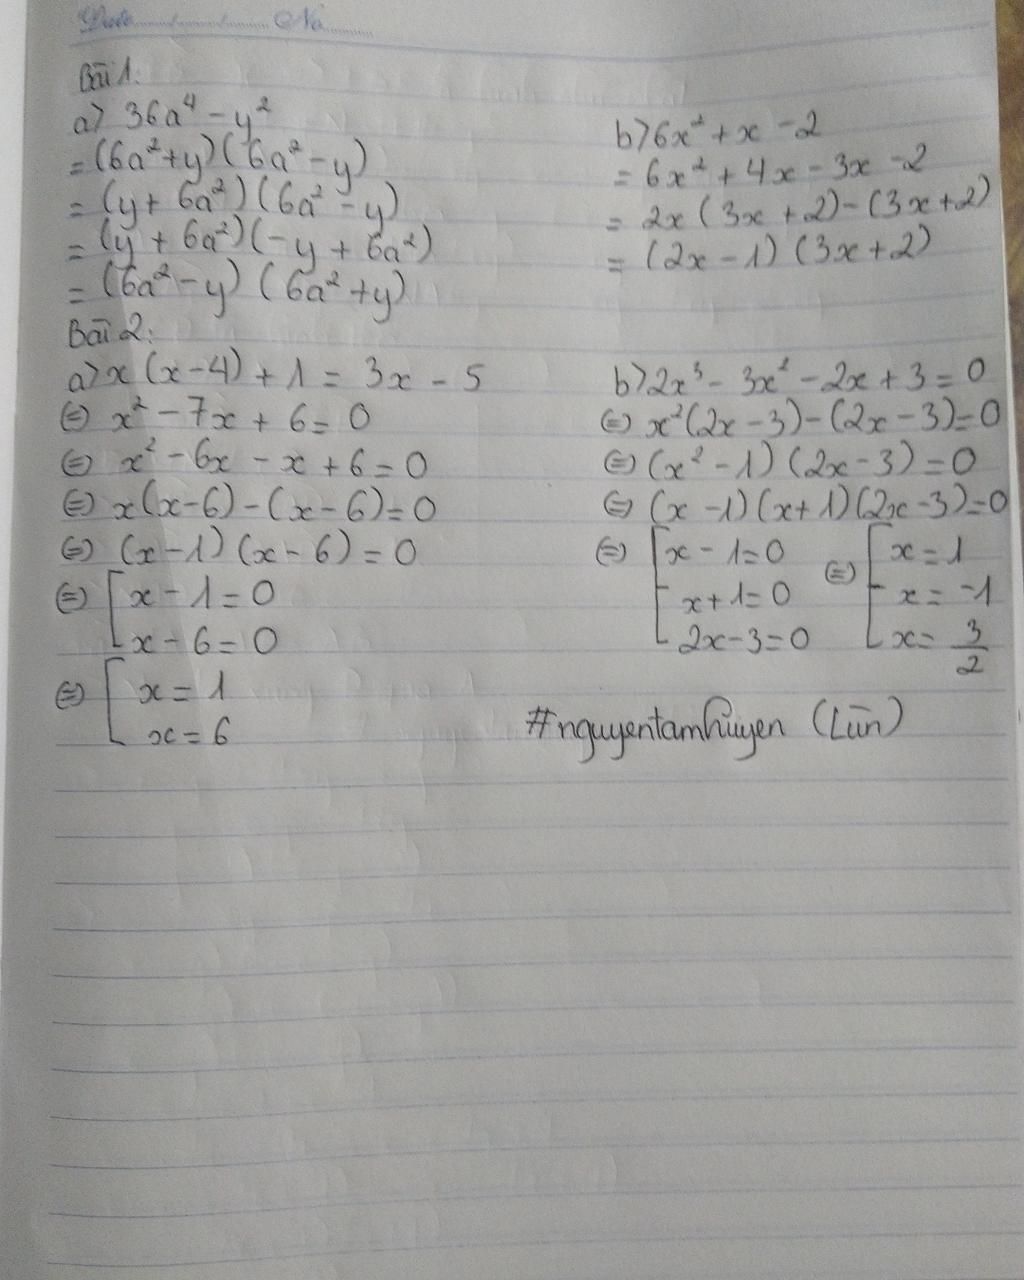 Date ............. No ............
Bài 1:
a) 36a⁴ - y²
= (6a²+y)(6a² - y)
= (y + 6a²)(6a² - y)
= (y + 6a²)(-y + 6a²)
= (6a² - y)(6a² + y)
b) 6x² + x - 2
= 6x² + 4x - 3x - 2
= 2x(3x + 2) - (3x + 2)
= (2x - 1)(3x + 2)
Bài 2:
a) x(x - 4) + 1 = 3x - 5
⇔ x² - 7x + 6 = 0
⇔ x² - 6x - x + 6 = 0
⇔ x(x - 6) - (x - 6) = 0
⇔ (x - 1)(x - 6) = 0
⇔ [ x - 1 = 0
x - 6 = 0
⇔ [ x = 1
x = 6
b) 2x³ - 3x² - 2x + 3 = 0
⇔ x²(2x - 3) - (2x - 3) = 0
⇔ (x² - 1)(2x - 3) = 0
⇔ (x - 1)(x + 1)(2x - 3) = 0
⇔ [ x - 1 = 0 ⇔ [ x = 1
x + 1 = 0 x = -1
2x - 3 = 0 x = 3/2
#nguyentamhuyen (Lùn)